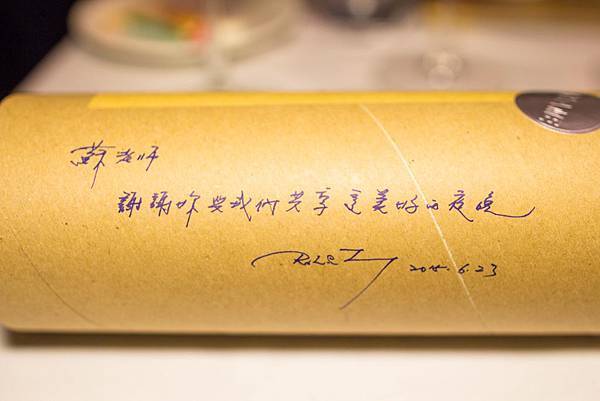 蘇老師
謝謝妳與我們共享這美好的夜晚
2018.6.23